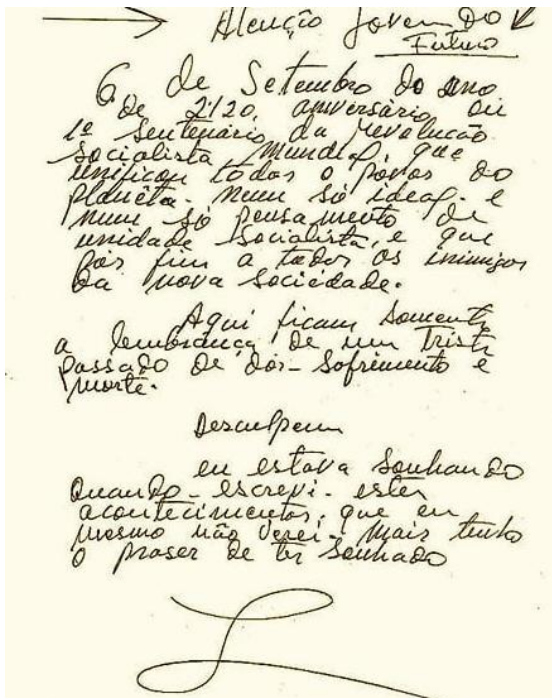 Atenção Jovem do
Futuro
6 de Setembro do ano
de 2120, aniversário ou
1º Sentenário da revolução
socialista mundial, que
unificou todos o povos do
planêta. num só ideal. e
num só pensamento de
unidade socialista, e que
pôs fim a todos os inimigos
da nova sociedade.
Aqui ficam somente
a lembrança de um triste
passado de dor - sofrimento e
morte.
Desculpem
eu estava sonhando
quando - escrevi. estes
acontecimentos, que eu
mesmo não verei. mais tenho
o praser de ter sonhado